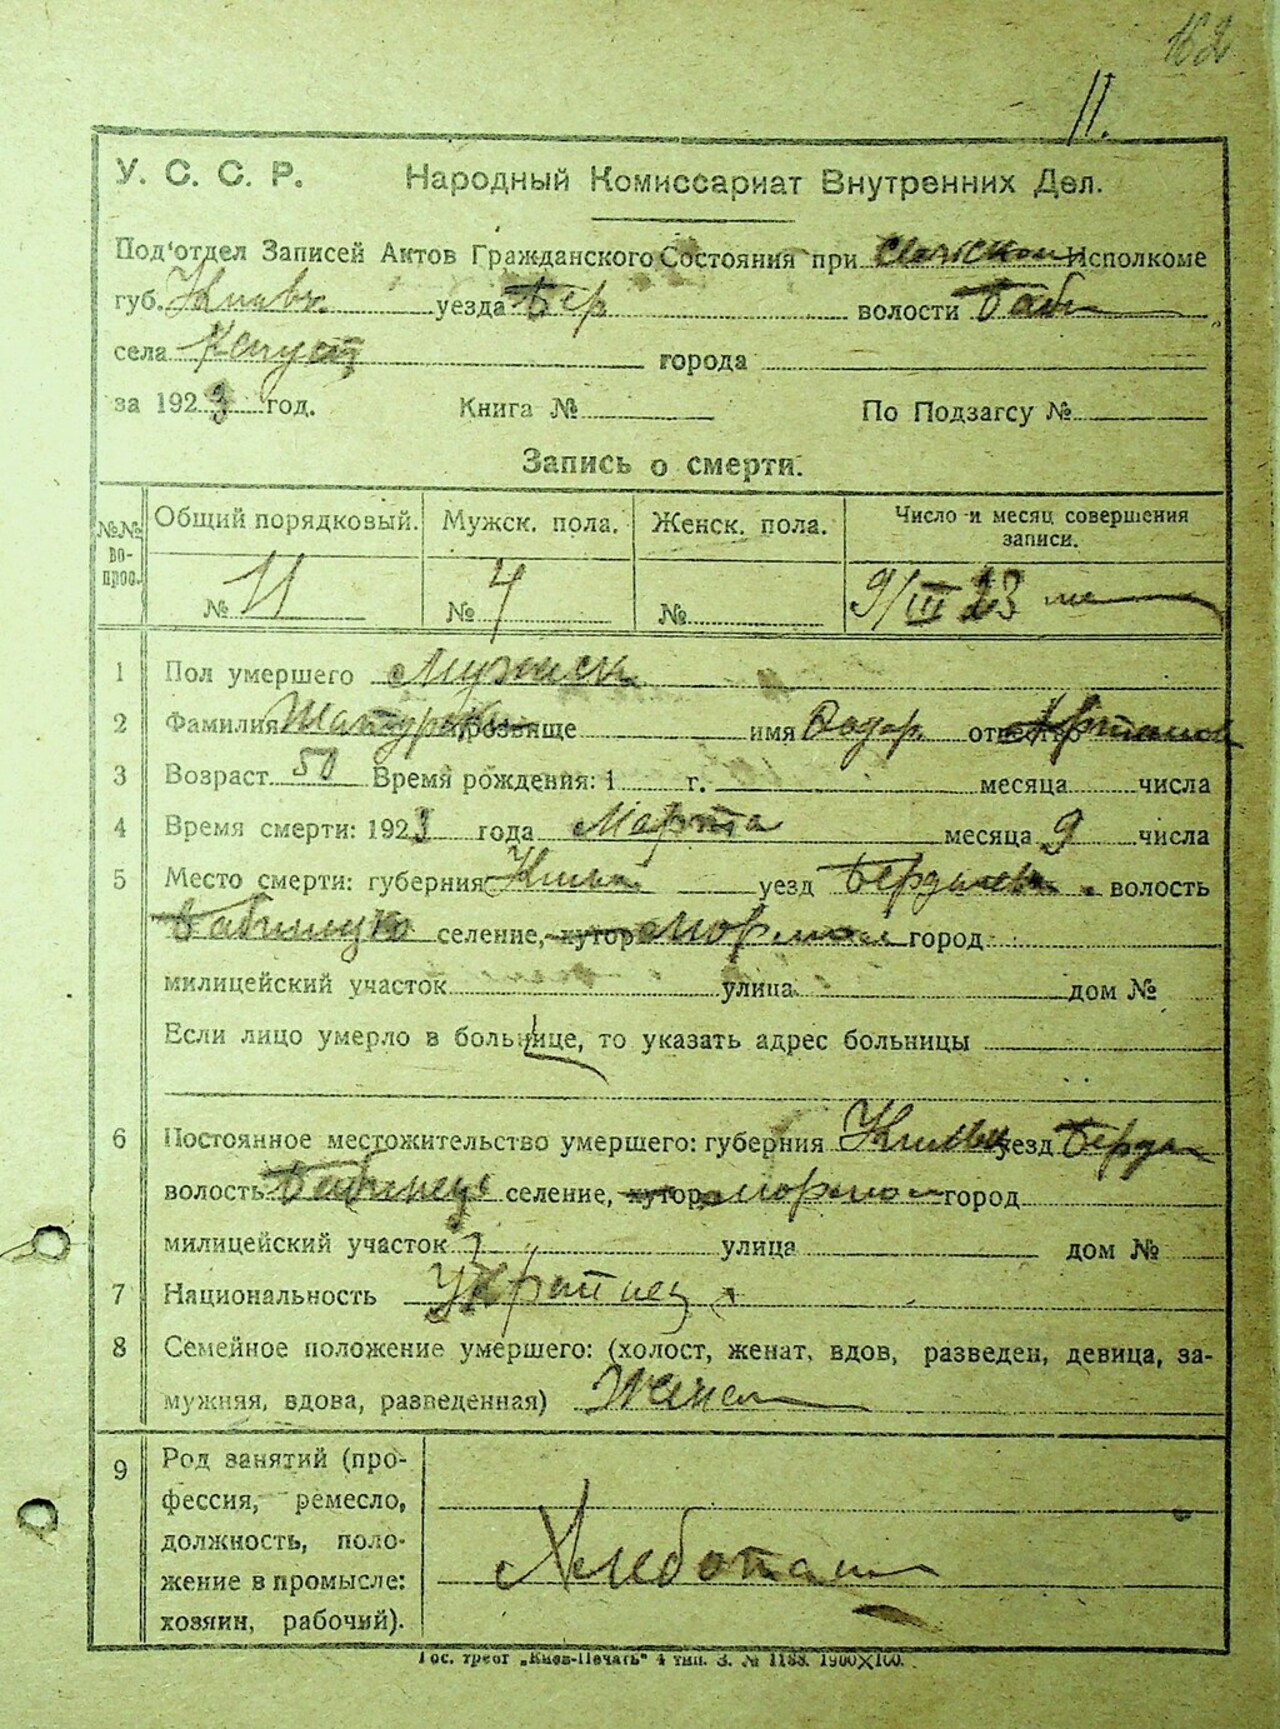 162
11.
У. С. С. Р. Народный Комиссариат Внутренних Дел.
Под'отдел Записей Актов Гражданского Состояния при Исполкоме
губ. Киевск. уезда Бер волости Баб
села города
за 1923 год. Книга № По Подзагсу №
Запись о смерти.
№№ вопрос. Общий порядковый. Мужск. пола. Женск. пола. Число и месяц совершения записи.
№ 11 № 4 № 9/III 23
1 Пол умершего Мужеск
2 Фамилия прозвище имя отчество
3 Возраст 50 Время рождения: 1 г. месяца числа
4 Время смерти: 1923 года Марта месяца 9 числа
5 Место смерти: губерния Киевск уезд Бердичев. волость
селение, хутор город
милицейский участок улица дом №
Если лицо умерло в больнице, то указать адрес больницы
6 Постоянное местожительство умершего: губерния уезд Берд
волость селение, хутор город
милицейский участок улица дом №
7 Национальность
8 Семейное положение умершего: (холост, женат, вдов, разведен, девица, за-
мужняя, вдова, разведенная)
9 Род занятий (про-
фессия, ремесло,
должность, поло-
жение в промысле:
хозяин, рабочий).
Гос. трест „Киев-Печать" 4 тип. З. № 1188. 1900×100.